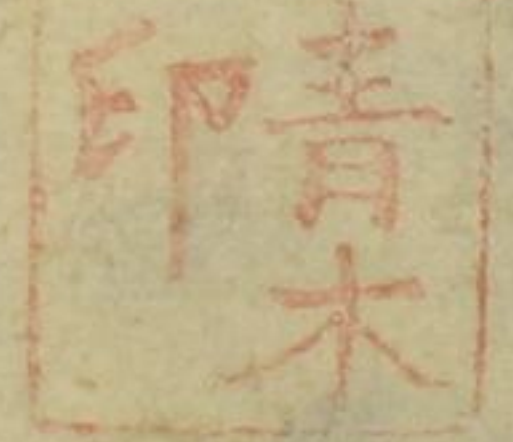 青木
印